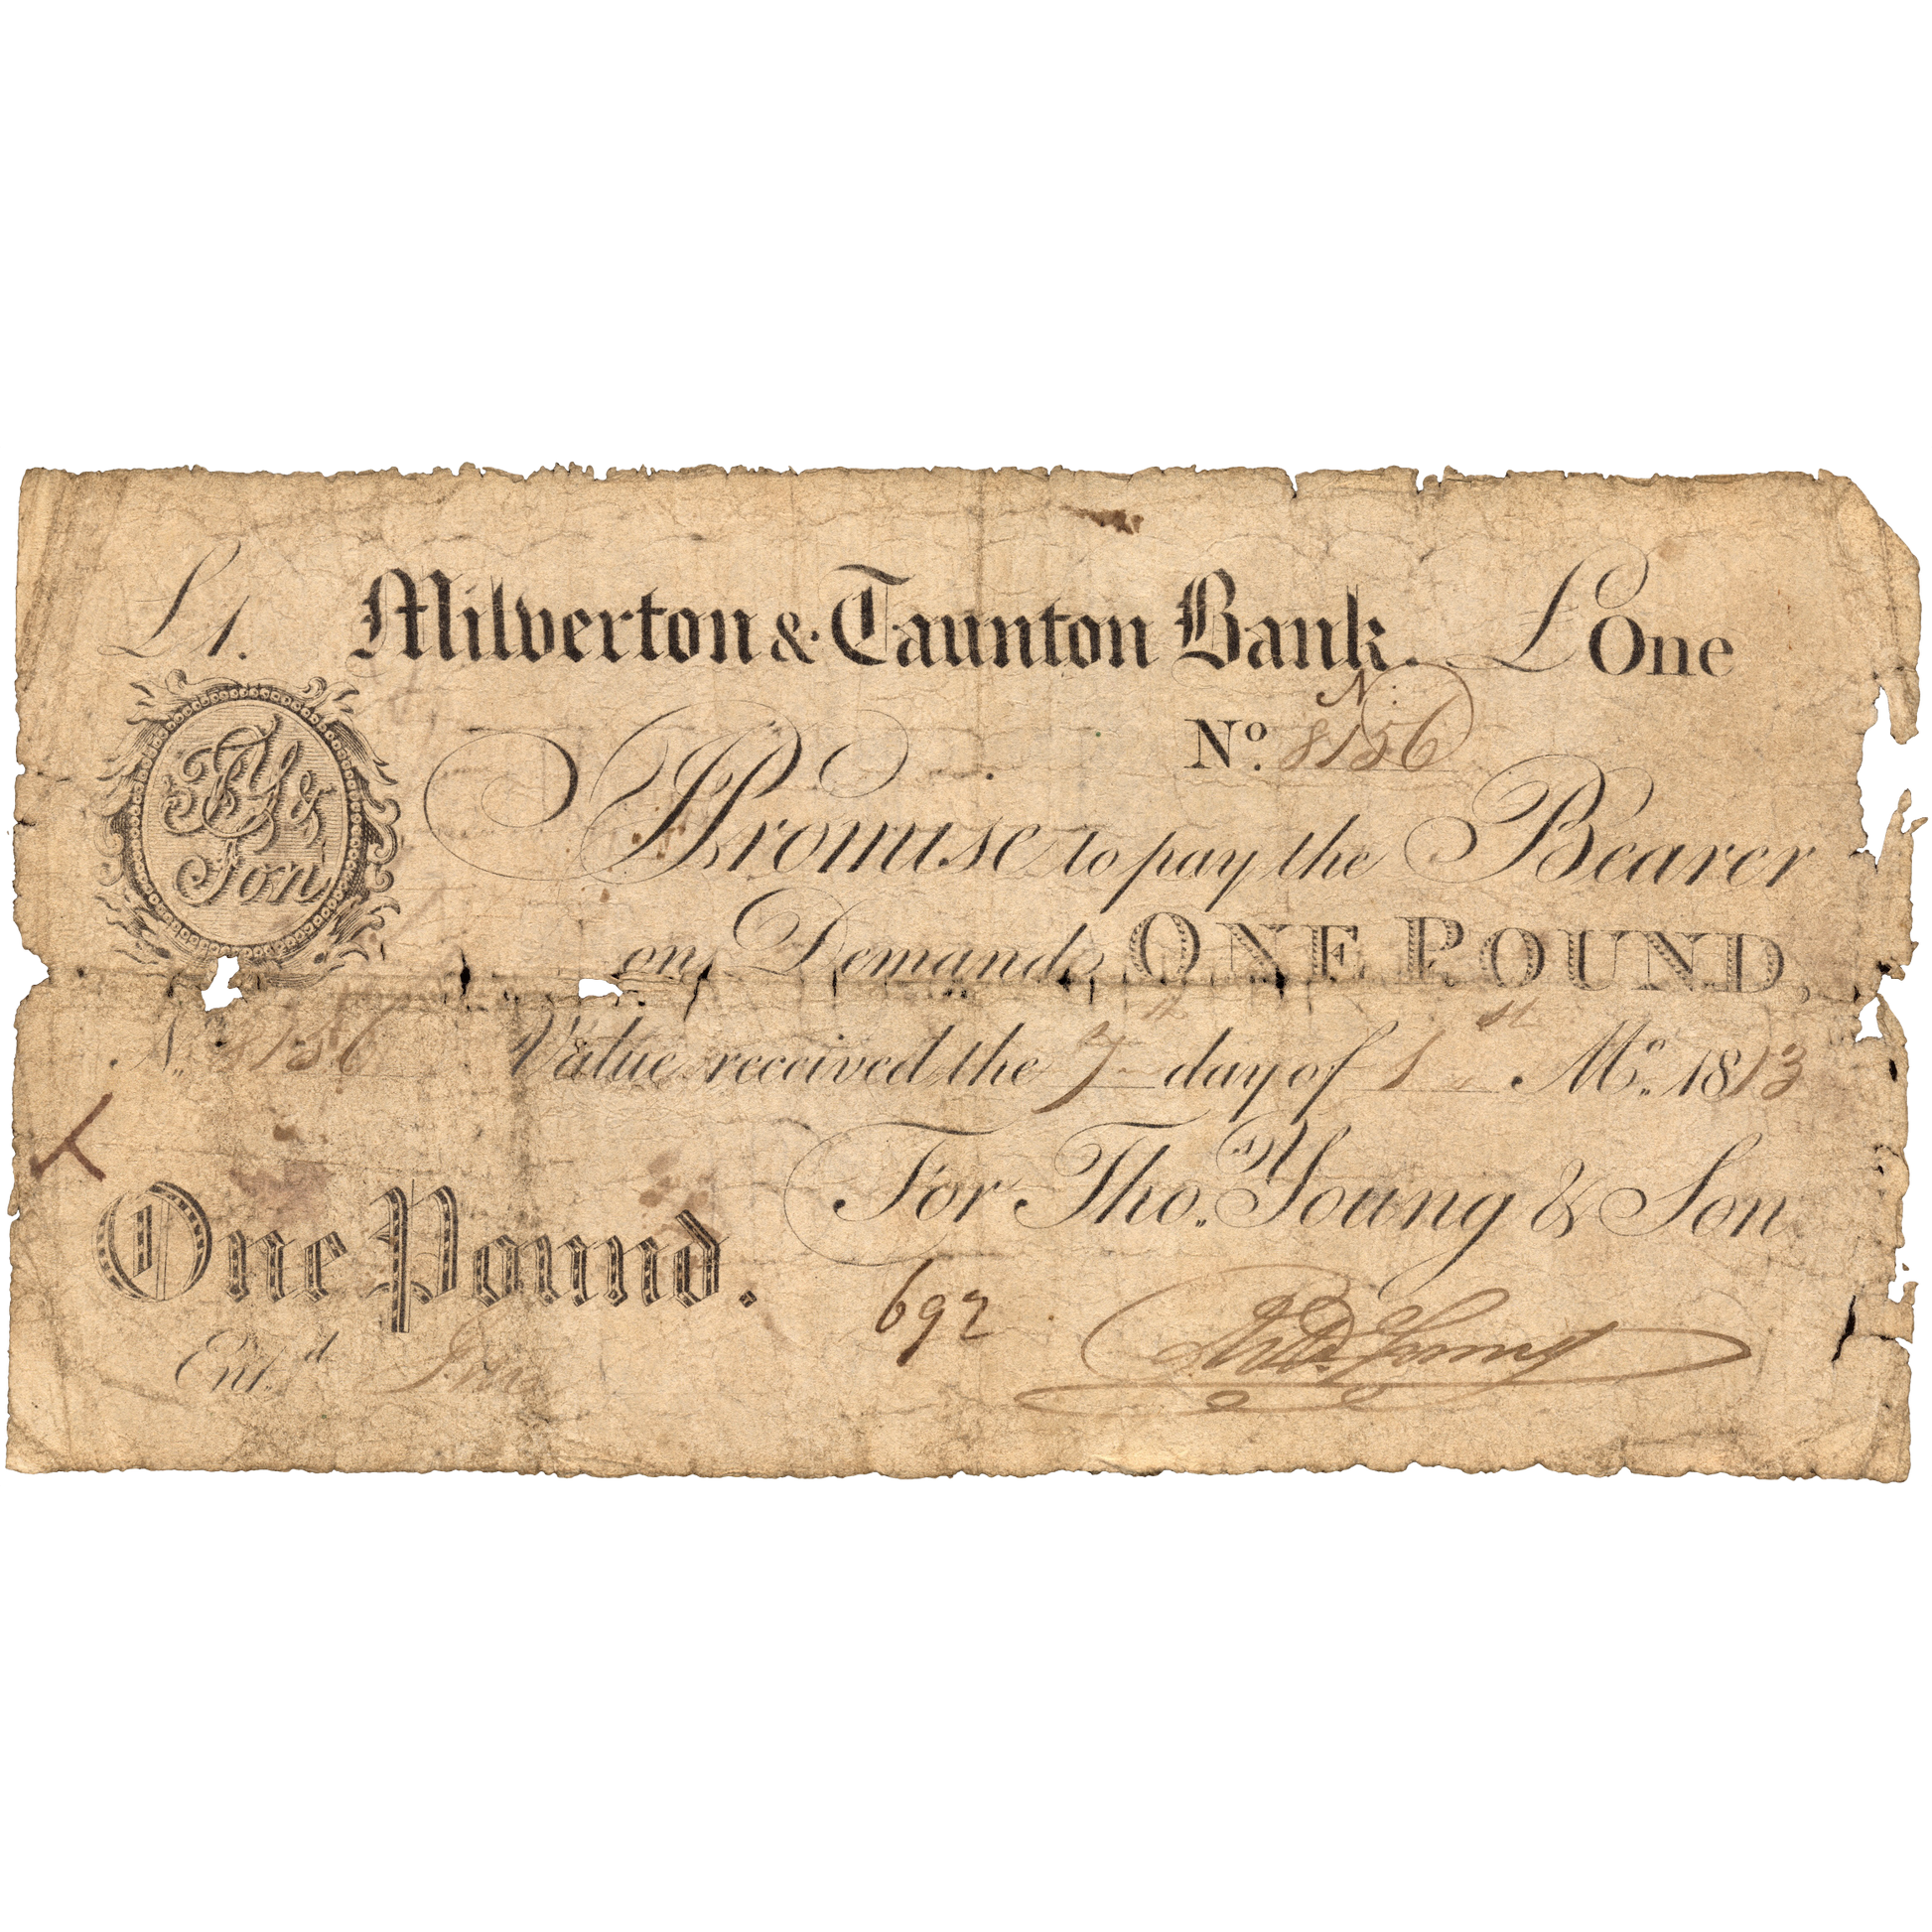 £1. Milverton & Taunton Bank. £ One
No. 8156
TY&
Son
I Promise to pay the Bearer
on Demand, ONE POUND,
No. 8156 Value received the 7th day of 1st Mo. 1813
For Thos. Young & Son
One Pound.
692
Entd.